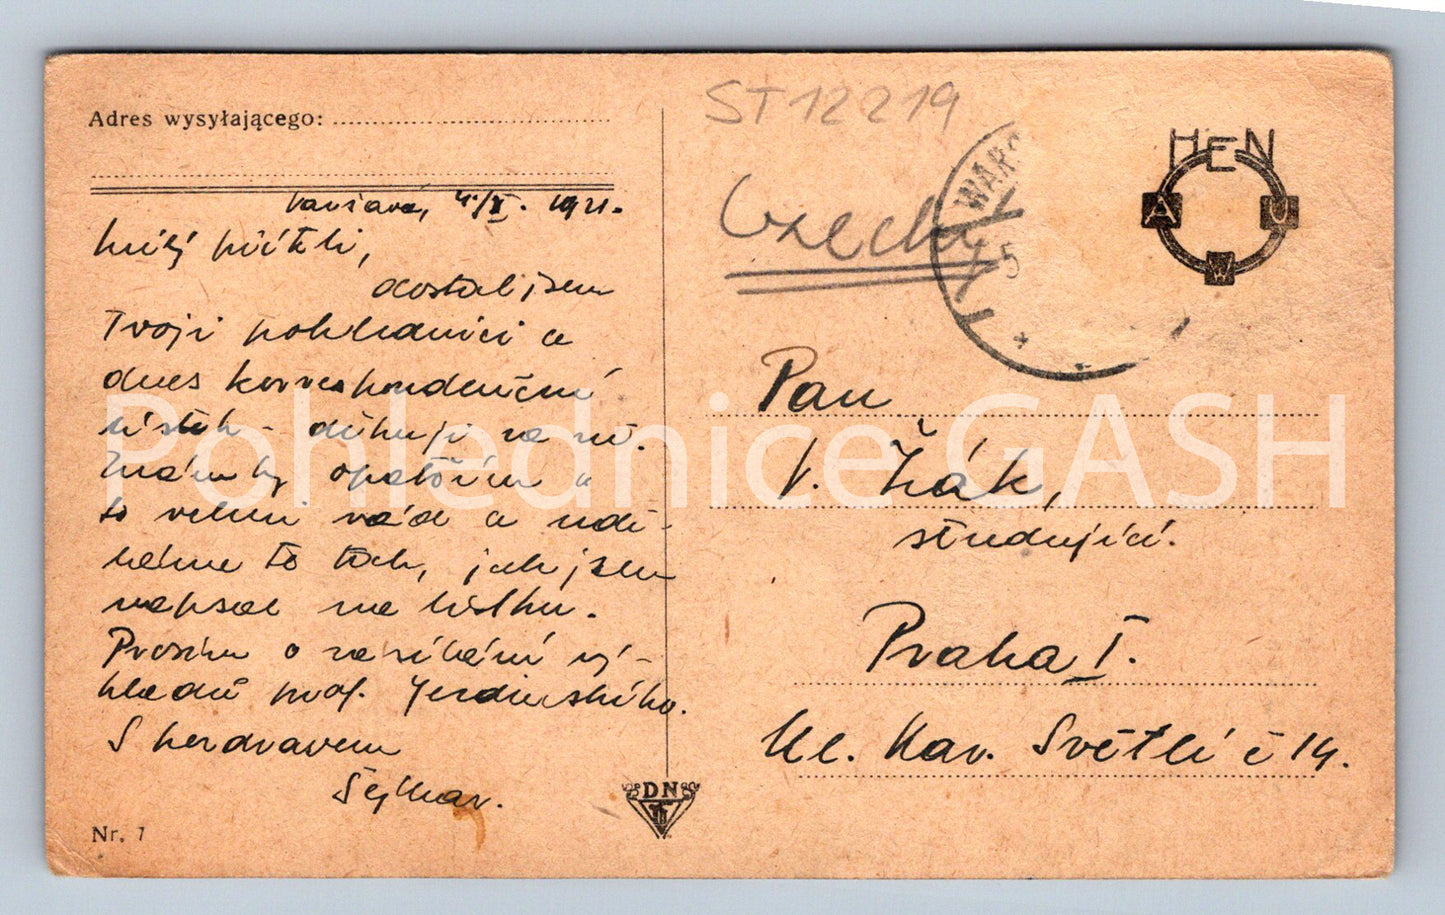 Adres wysyłającego:
Varšava, 4./X. 1921.
milý příteli,
dostal jsem
Tvoji pohlednici a
dnes korrespondenční
lístek - děkuji za ně.
Známky opatřím a
to velmi rád a udě-
láme to tak, jak jsem
napsal na lístku.
Prosím o zasílání vý-
kladů prof.
S pozdravem
Nr. 7
DNS
ST12219
Czechy
WARS
5
HEN
A U
W
Pan
V. Žák,
studující.
Praha I.
Ul. Kar. Světlé č 14.
Pohlednice GASH